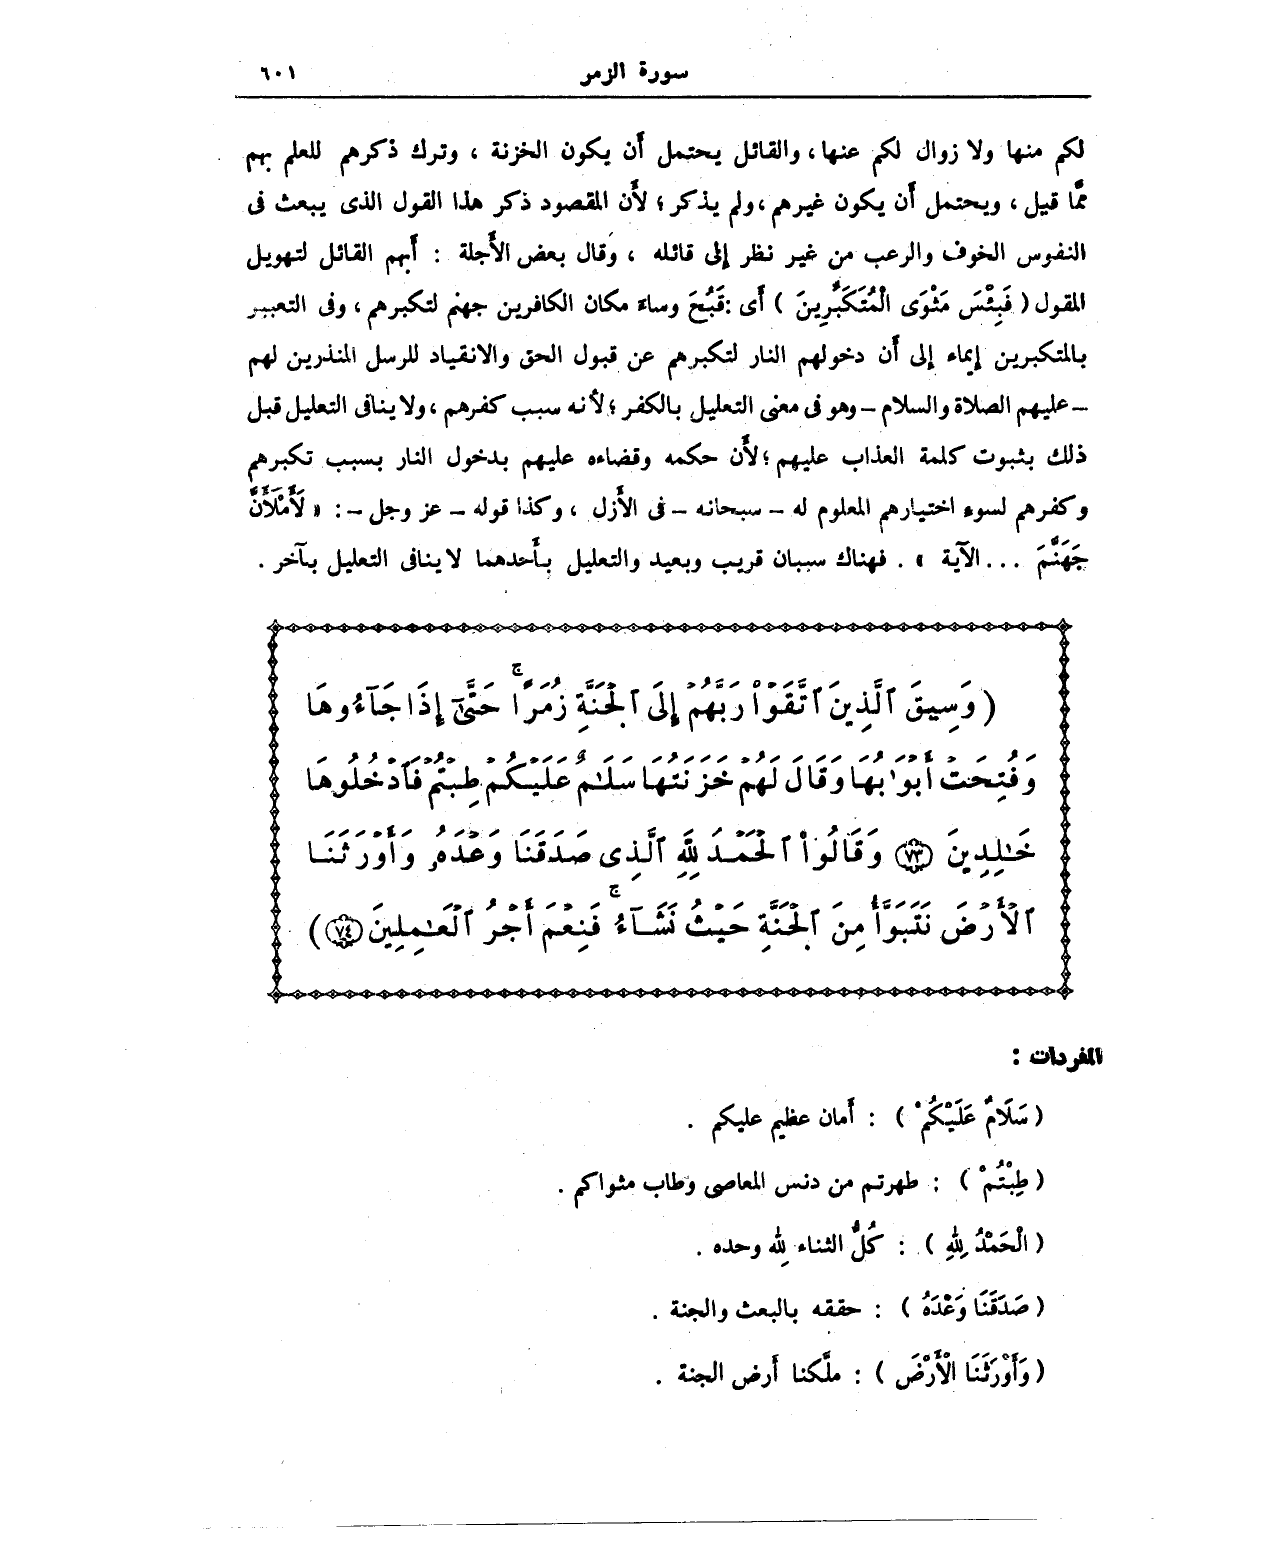 سورة الزمر ٦٠١
لكم منها ولا زوال لكم عنها، والقائل يحتمل أن يكون الخزنة ، وترك ذكرهم للعلم بهم
ممَّا قيل ، ويحتمل أن يكون غيرهم ،ولم يذكر ؛ لأن المقصود ذكر هذا القول الذى يبعث فى
النفوس الخوف والرعب من غير نظر إلى قائله ، وقال بعض الأجلة : أبهم القائل لتهويل
المقول ( فَبِئْسَ مَثْوَى الْمُتَكَبِّرِينَ ) أى :قَبُحَ وساء مكان الكافرين جهنم لتكبرهم ، وفى التعبير
بالمتكبرين إيماء إلى أن دخولهم النار لتكبرهم عن قبول الحق والانقياد للرسل المنذرين لهم
– عليهم الصلاة والسلام – وهو فى معنى التعليل بالكفر ؛لأنه سبب كفرهم ، ولا ينافى التعليل قبل
ذلك بثبوت كلمة العذاب عليهم ؛لأن حكمه وقضاءه عليهم بدخول النار بسبب تكبرهم
وكفرهم لسوء اختيارهم المعلوم له – سبحانه – فى الأزل ، وكذا قوله – عز وجل – : « لَأَمْلَأَنَّ
جَهَنَّمَ ... الآية » . فهناك سببان قريب وبعيد والتعليل بأحدهما لا ينافى التعليل بآخر .
( وَسِيقَ ٱلَّذِينَ ٱتَّقَوْا۟ رَبَّهُمْ إِلَى ٱلْجَنَّةِ زُمَرًا ۖ حَتَّىٰٓ إِذَا جَآءُوهَا
وَفُتِحَتْ أَبْوَٰبُهَا وَقَالَ لَهُمْ خَزَنَتُهَا سَلَـٰمٌ عَلَيْكُمْ طِبْتُمْ فَٱدْخُلُوهَا
خَـٰلِدِينَ ﴿٧٣﴾ وَقَالُوا۟ ٱلْحَمْدُ لِلَّهِ ٱلَّذِى صَدَقَنَا وَعْدَهُۥ وَأَوْرَثَنَا
ٱلْأَرْضَ نَتَبَوَّأُ مِنَ ٱلْجَنَّةِ حَيْثُ نَشَآءُ ۖ فَنِعْمَ أَجْرُ ٱلْعَـٰمِلِينَ ﴿٧٤﴾ )
المفردات :
( سَلَامٌ عَلَيْكُمْ ) : أمان عظيم عليكم .
( طِبْتُمْ ) : طهرتم من دنس المعاصى وطاب مثواكم .
( الْحَمْدُ لِلهِ ) : كُلُّ الثناء لله وحده .
( صَدَقَنَا وَعْدَهُ ) : حققه بالبعث والجنة .
( وَأَوْرَثَنَا الْأَرْضَ ) : ملَّكنا أرض الجنة .